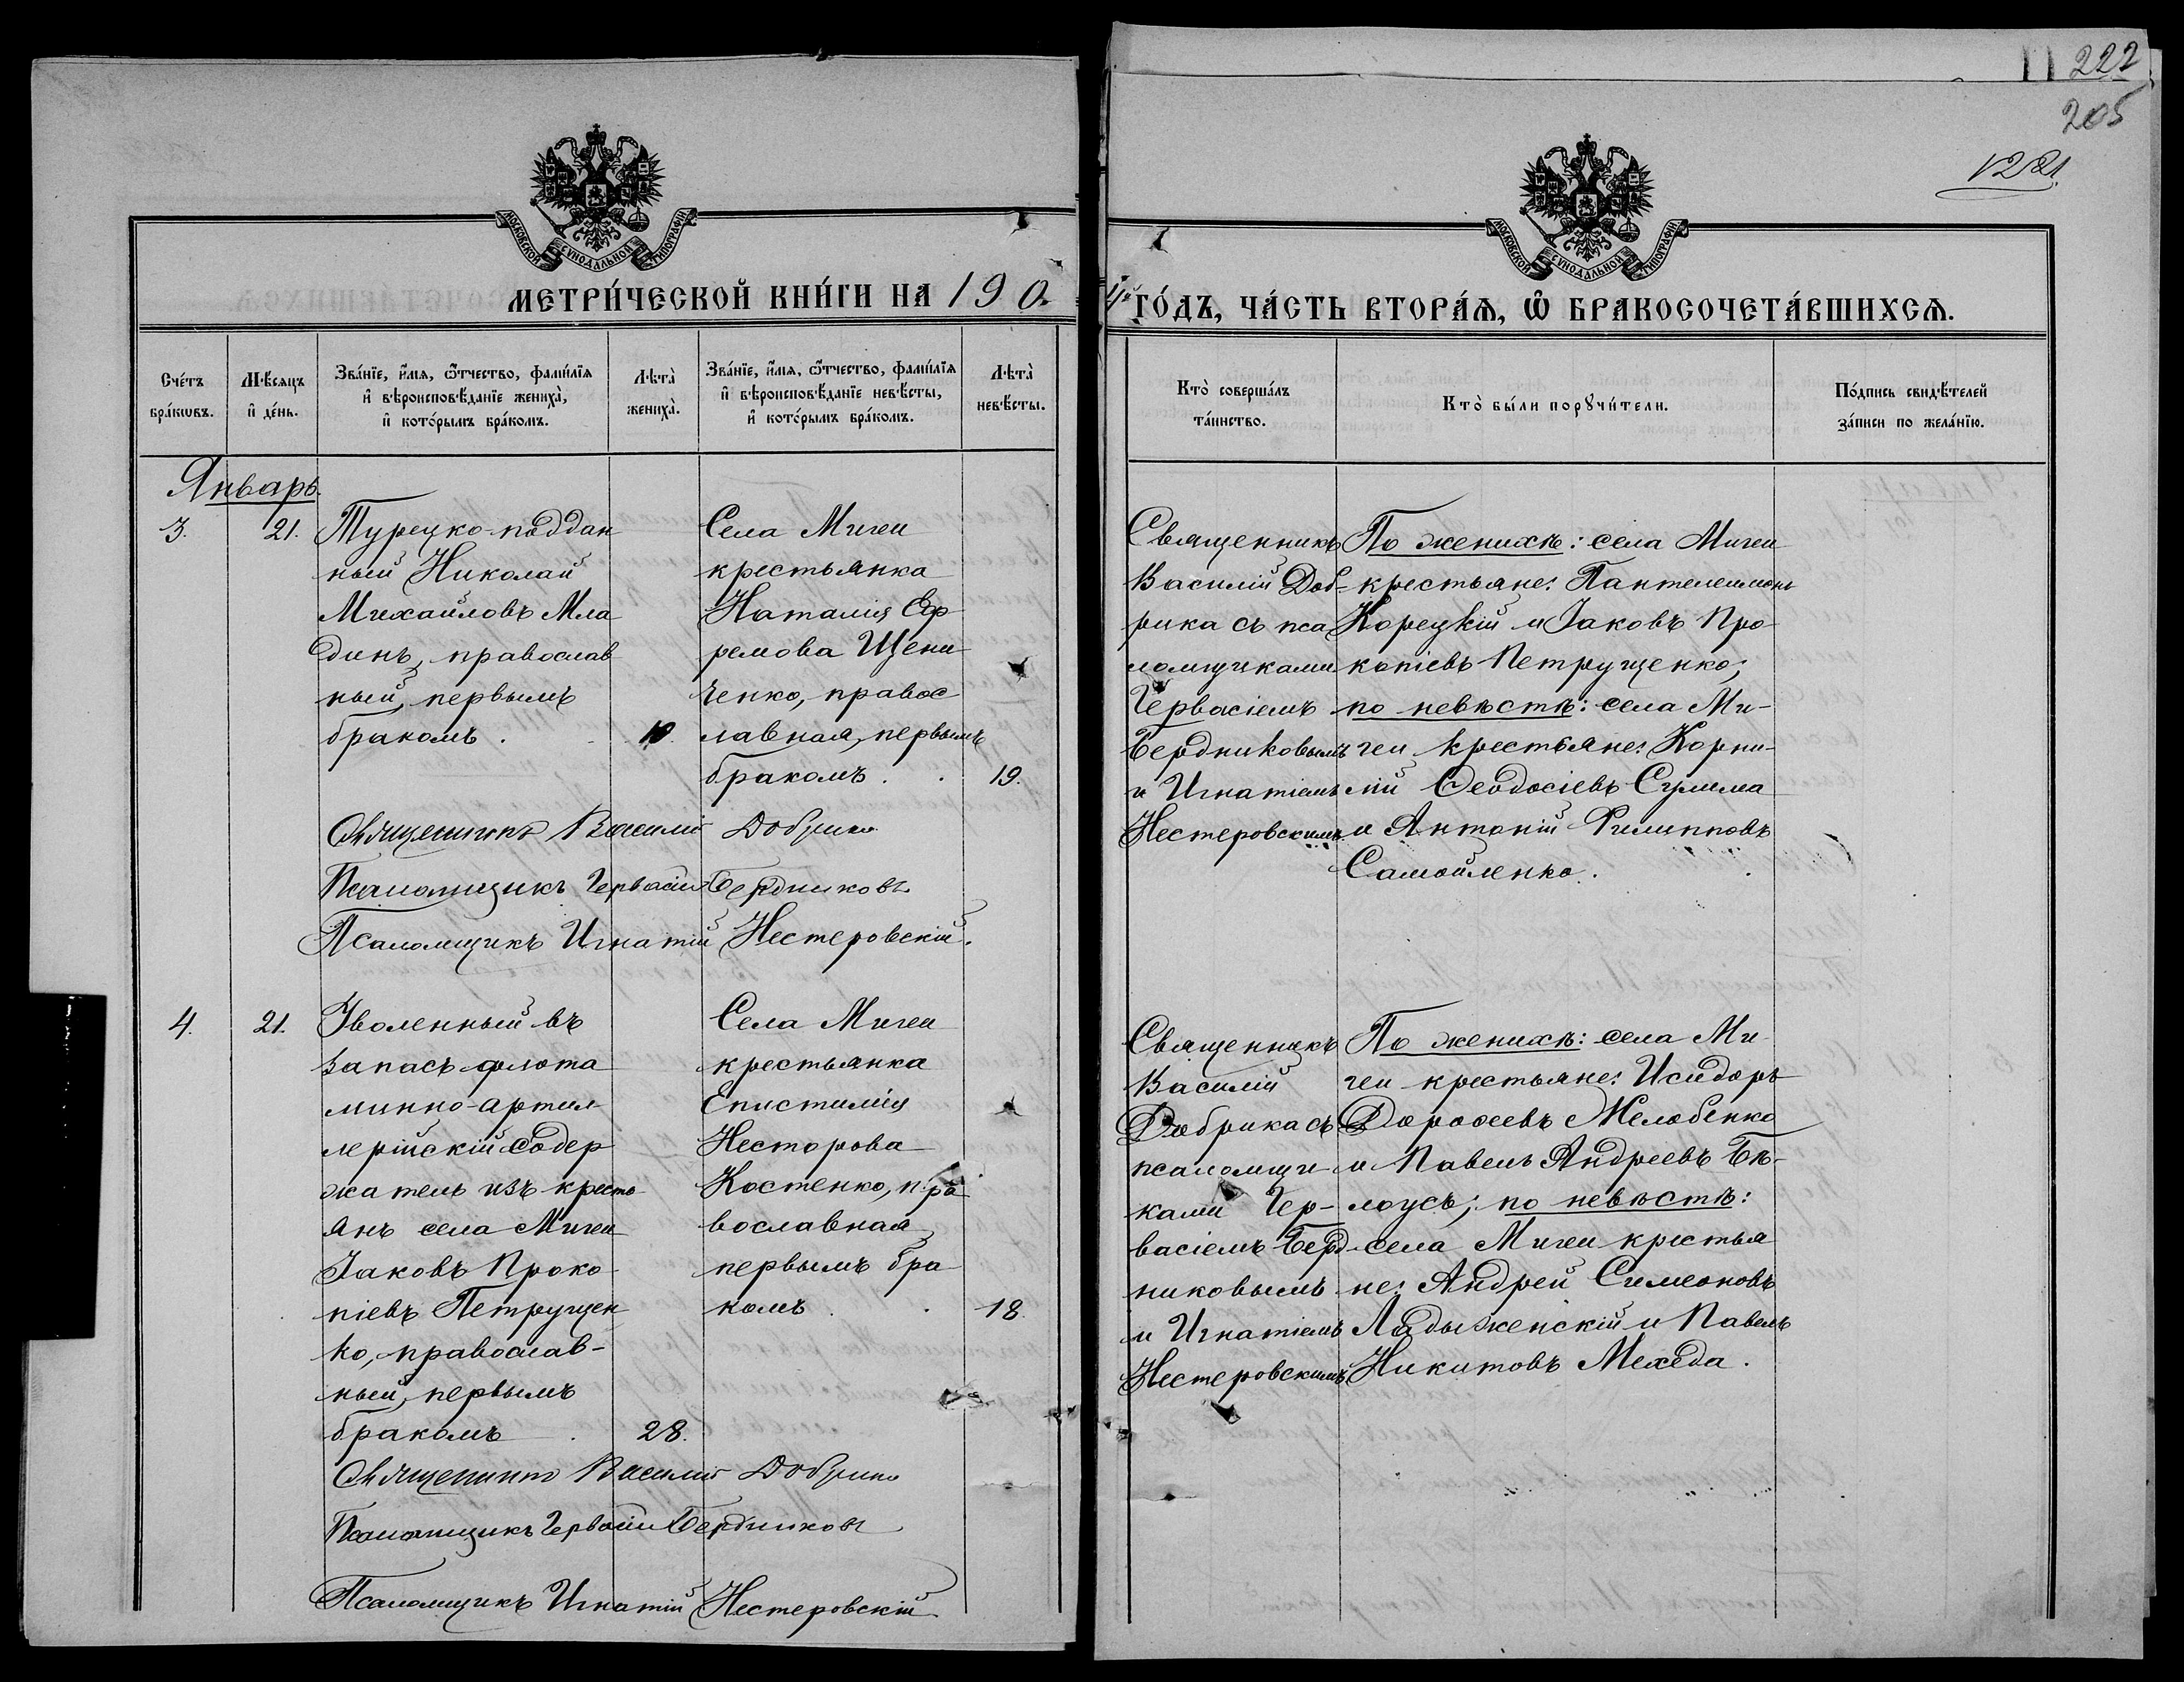 222
205
МОСКОВСКОЙ СѴНОДАЛЬНОЙ ТИПОГРАФІИ
МОСКОВСКОЙ СѴНОДАЛЬНОЙ ТИПОГРАФІИ
МЕТРИ́ЧЕСКОЙ КНИ́ГИ НА 190
4й ГО́ДЪ, ЧА́СТЬ ВТОРА́Ѧ, Ѽ БРАКОСОЧЕТА́ВШИХСѦ.
Сче́тъ
бра́кѡвъ.
Мѣ́сяцъ
и҆ де́нь.
Зва́нїе, и҆́мя, ѻ҆́тчество, фами́лїя
и҆ вѣроисповѣ́данїе жениха̀,
и҆ кото́рымъ бра́комъ.
Лѣта̀
жениха̀.
Зва́нїе, и҆́мя, ѻ҆́тчество, фами́лїя
и҆ вѣроисповѣ́данїе невѣ́сты,
и҆ кото́рымъ бра́комъ.
Лѣта̀
невѣ́сты.
Кто̀ соверша́лъ
та́инство.
Кто̀ бы́ли порꙋчи́тели.
По́дпись свидѣ́телей
за́писи по жела́нїю.
Январь.
3.
21.
Турецко-поддан
ный Николай
Михайловъ Мла
динъ, православ
ный, первымъ
бракомъ.
Села Мигеи
крестьянка
Наталія Еф
ремова Щени
ченко, правос
лавная, первымъ
бракомъ.
19.
Священникъ
Василій Доб-
рика съ пса
ломщиками
Гервасіемъ
Бердниковымъ
и Игнатіемъ
Нестеровскимъ
По женихѣ: села Мигеи
крестьяне: Пантелеимонъ
Корецкій и Іаковъ Про
копіевъ Петрущенко;
по невѣстѣ: села Ми-
геи крестьяне: Корни-
лій Ѳеодосіевъ Сулима
и Антоній Филипповъ
Самойленко.
Священникъ Василій Добрика
Псаломщикъ Гервасій Бердниковъ
Псаломщикъ Игнатій Нестеровскій.
4.
21.
Уволенный въ
запасъ флота
минно-артил
лерійскій содер
жатель изъ кресть
янъ села Мигеи
Іаковъ Проко
піевъ Петрущен
ко, православ-
ный, первымъ
бракомъ.
28.
Села Мигеи
крестьянка
Епистимія
Несторова
Костенко, пра
вославная
первымъ бра
комъ.
18.
Священникъ
Василій
Добрика съ
псаломщи
ками Гер-
васіемъ Берд
никовымъ
и Игнатіемъ
Нестеровскимъ
По женихѣ: села Ми
геи крестьяне: Исидоръ
Дороѳеевъ Желобенко
и Павелъ Андреевъ Бѣ-
лоусъ; по невѣстѣ:
села Мигеи крестья
не: Андрей Симеоновъ
Ладыженскій и Павелъ
Никитовъ Мехеда.
Священникъ Василій Добрика
Псаломщикъ Гервасій Бердниковъ
Псаломщикъ Игнатій Нестеровскій